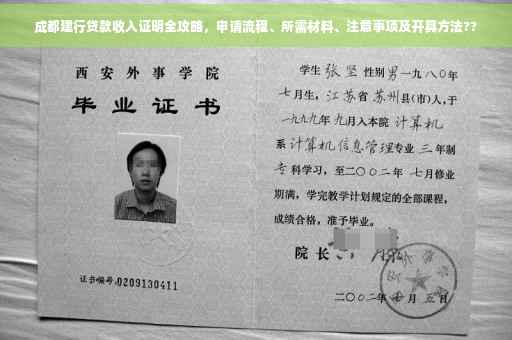 成都建行贷款收入证明全攻略，申请流程、所需材料、注意事项及开具方法??
西安外事学院
毕业证书
证书编号:0209130411
学生张坚性别男一九八〇年
七月生，江苏省苏州县(市)人，于
一九九九年九月入本院计算机
系计算机信息管理专业三年制
专科学习，至二〇〇二年七月修业
期满，学完教学计划规定的全部课程，
成绩合格，准予毕业。
院长
二〇〇二年 月五日